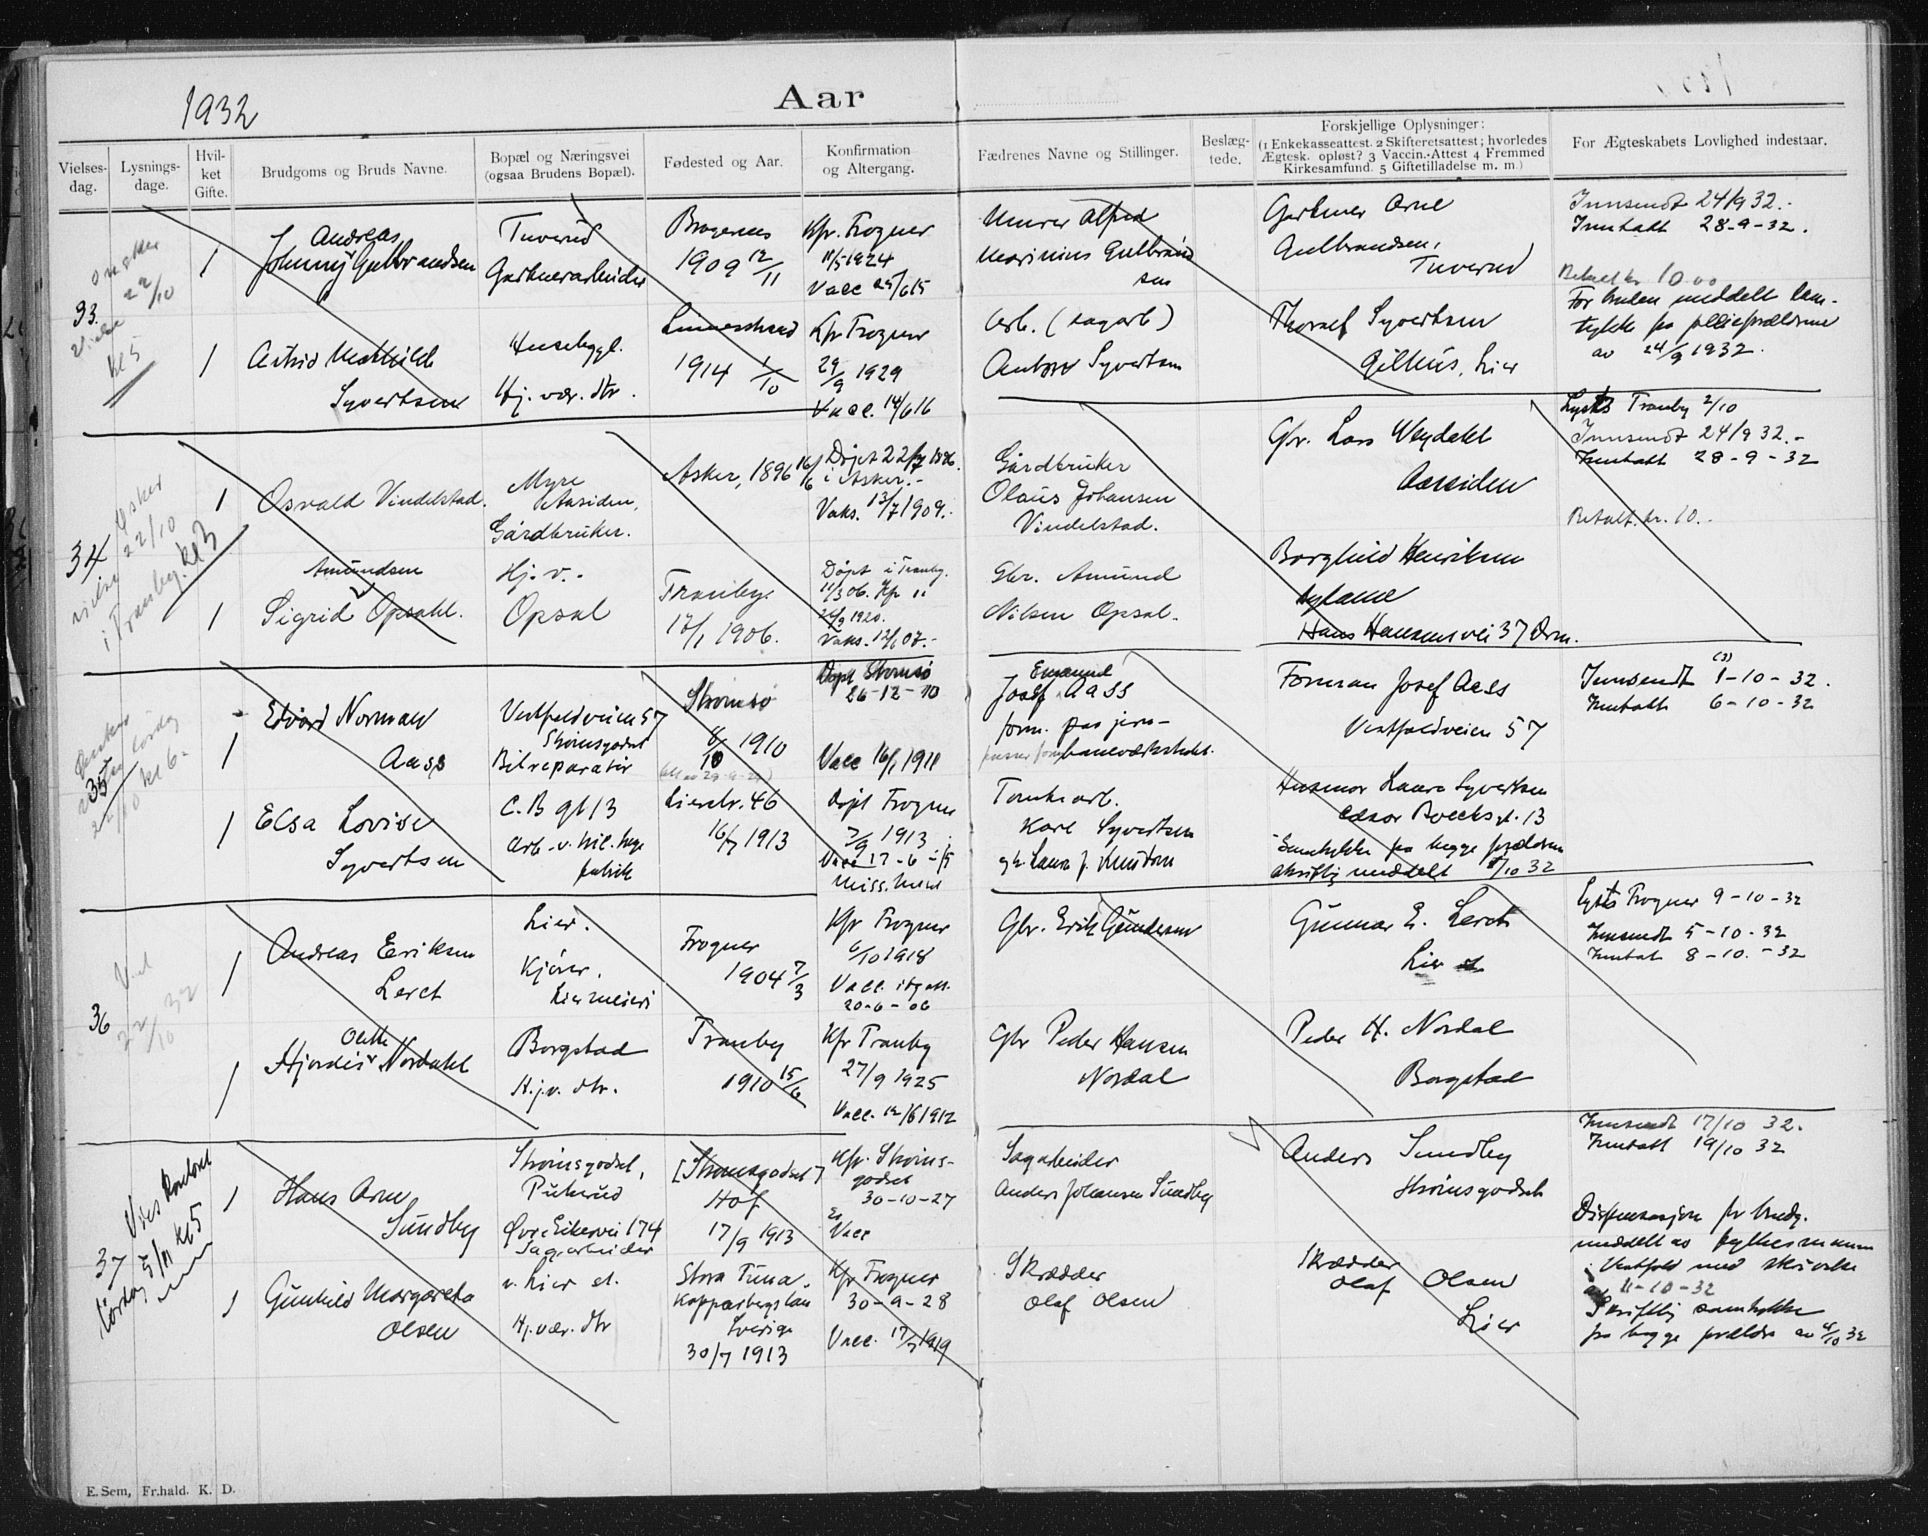 1932
Aar
Vielses-dag.
Lysnings-dage.
Hvil-ket Gifte.
Brudgoms og Bruds Navne.
Bopæl og Næringsvei (ogsaa Brudens Bopæl).
Fødested og Aar.
Konfirmation og Altergang.
Fædrenes Navne og Stillinger.
Beslæg-tede.
Forskjellige Oplysninger:
(1 Enkekasseattest. 2 Skifteretsattest; hvorledes
Ægtesk. opløst? 3 Vaccin.-Attest 4 Fremmed
Kirkesamfund. 5 Giftetilladelse m. m.)
For Ægteskabets Lovlighed indestaar.
33.
ønsker
22/10
kl 5
1
Andreas
Johnny Gulbrandsen
Tuverud
Gartnerarbeider
Bragernes
1909 12/11
Kfr. Frogner
11/5 1924
Vacc 25/6 15
Murer Alfred
Marinius Gulbrand
sen
Gartner Arne
Gulbrandsen,
Tuverud
Innsendt 24/9 32.-
Inntatt 28-9-32.
Betalt kr 10.00
1
Astrid Mathilde
Syvertsen
Husebyggl.
Hj. vær. dtr.
1914 1/10
Kfr Frogner
29/9 1929
Vacc. 14/6 16
Arb. (sagarb)
Anton Syvertsen
Thoralf Syvertsen
Gilhus, Lier
For bruden meddelt sam-
tykke fra
av 24/9 1932.
34
Ønsker
22/10
vielse
i Tranby. kl 3
1
Osvald Vindelstad.
Myre
Aasiden,
Gårdbruker.
Asker, 1896 16/6
Døpt 22/7 1896.
i Asker.-
Vaks. 13/7 1909.-
Gårdbruker
Olaus Johansen
Vindelstad.
Gbr. Lars Weydahl
Aassiden
Lyst Tranby 2/10
Innsendt 24/9 32.-
Inntatt 28-9-32
Betalt kr. 10.-
1
Amundsen
Sigrid Opsahl.
Hj. v.-
Opsal
Tranby.
17/1 1906.
Døpt i Tranby.
11/3 06. Kfr "
26/9 1920.
Vaks. 12/6 07.-
Gbr. Amund
Nilsen Opsal.
Borghild Henriksen
Hans Hansensvei 37 Drm.
35
kl 6-
1
Edvard Norman
Aass
Vestfoldveien 57
Strømsgodset
Bilreparatør
Strømsø
8/10 1910
Døpt Strømsø
26-12-10
Vacc 16/1 1911
Emanuel
Josef Aass
form. paa jern-
baneværkstedet.
Forman Josef Aass
Vestfoldveien 57
Innsendt 1-10-32.
Inntatt 6-10-32
1
Elsa Lovise
Syvertsen
C. B gt 13
Arb. v. Mil. hyge
fabrik
Lierstr. 46
16/7 1913
Døpt Frogner
7/9 1913
Vacc 17-6-15
Tomtearb.
Karl Syvertsen
Husmor Laura Syvertsen
Cæsar Boecksgt. 13
Samtykke fra begge forældre
skriftlig meddelt 1/10 32
36
22/10 32
1
Andreas Eriksen
Leret
Lier.
Kjører,
Liermeieri
Frogner
1904 7/3
Kfr Frogner
6/10 1918
Vacc. iflg att.
20-6-06
Gbr. Erik Gundersen
Gunnar E. Leret
Lier st
Lyst Frogner 9-10-32
Innsendt 5-10-32
Inntat 8-10.-32
1
Olette
Hjordis Nordahl
Borgstad
H.j.v. dtr.
Tranby
1910 15/6
Kfr Tranby
27/9 1925
Vacc. 12/6 1912
Gbr Peder Hansen
Nordal
Peder H. Nordal
Borgstad
37
Vies
lørdag 5/11 kl 5
1
Hans Arne
Sundby
Strømsgodset,
Puterud
Øvre Eikervei 174
Sagarbeider
[Strømsgodset]
Hof
17/9 1913
Kfr. Strøms-
godset
30-10-27
Vacc
Sagarbeider
Anders Johansen Sundby
Anders Sundby
Strømsgodset
Innsendt 17/10 32.
Inntatt 19/10 32
Dispensasjon for brudg.
meddelt av fylkesmannen
i Vestfold med skrivelse
av 11-10-32
1
Gunhild Margareta
Olsen
v. Lier st.
Hj. vær. dtr
Stora Tuna.
Kopparbergs län
Sverige
30/7 1913
Kfr Frogner
30-9-28
Vacc. 17/7 1919
Skrædder
Olaf Olsen
Skrædder
Olaf Olsen
Lier
Skriftlig samtykke
fra begge forældre av 4/10 32
E. Sem, Fr.hald. K. D.